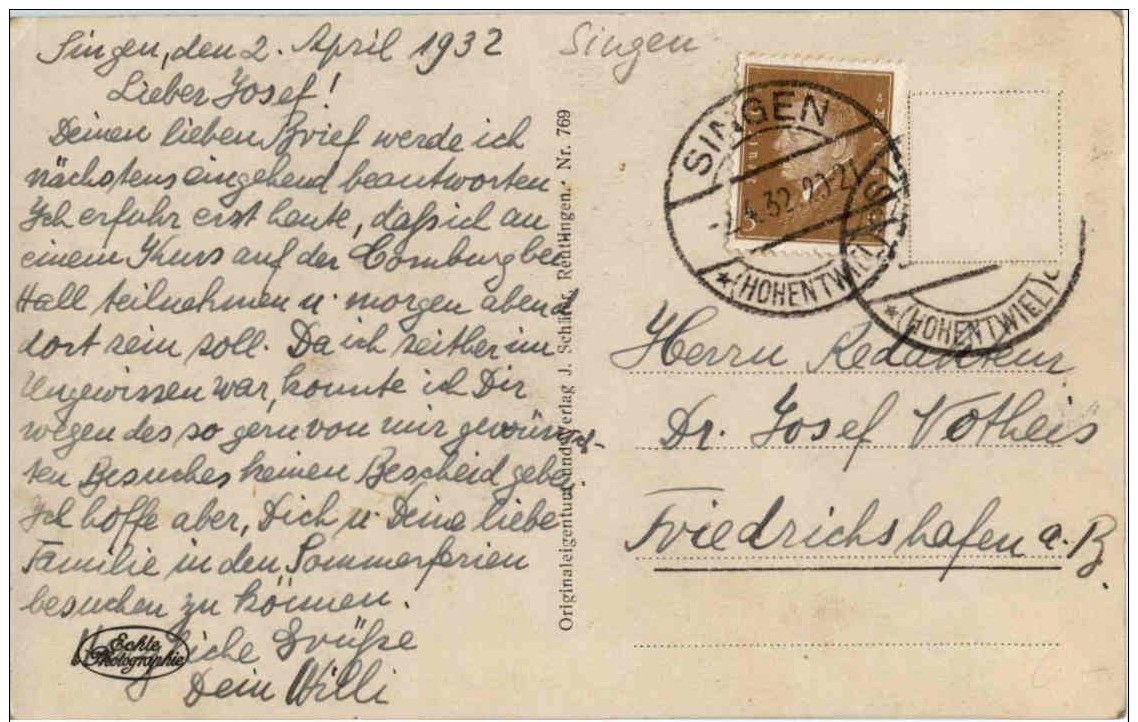 Singen, den 2. April 1932
Lieber Josef!
Deinen lieben Brief werde ich
nächstens eingehend beantworten
Ich erfuhr erst heute, daß ich an
einem Kurs auf der Comburg bei
Hall teilnehmen u. morgen abend
dort sein soll. Da ich seither im
Ungewissen war, konnte ich Dir
wegen des so gern von mir gewünsch-
ten Besuches keinen Bescheid geben
Ich hoffe aber, Dich u. Deine liebe
Familie in den Sommerferien
besuchen zu können.
Herzliche Grüße
Dein Willi
Echte
Photographie
Originaleigentum und Verlag J. Schlicht, Reutlingen. Nr. 769
Singen
SINGEN
4.32.
(HOHENTWIEL)
(HOHENTWIEL)
Herrn Redakteur
Dr. Josef Votheis
Friedrichshafen a. B.